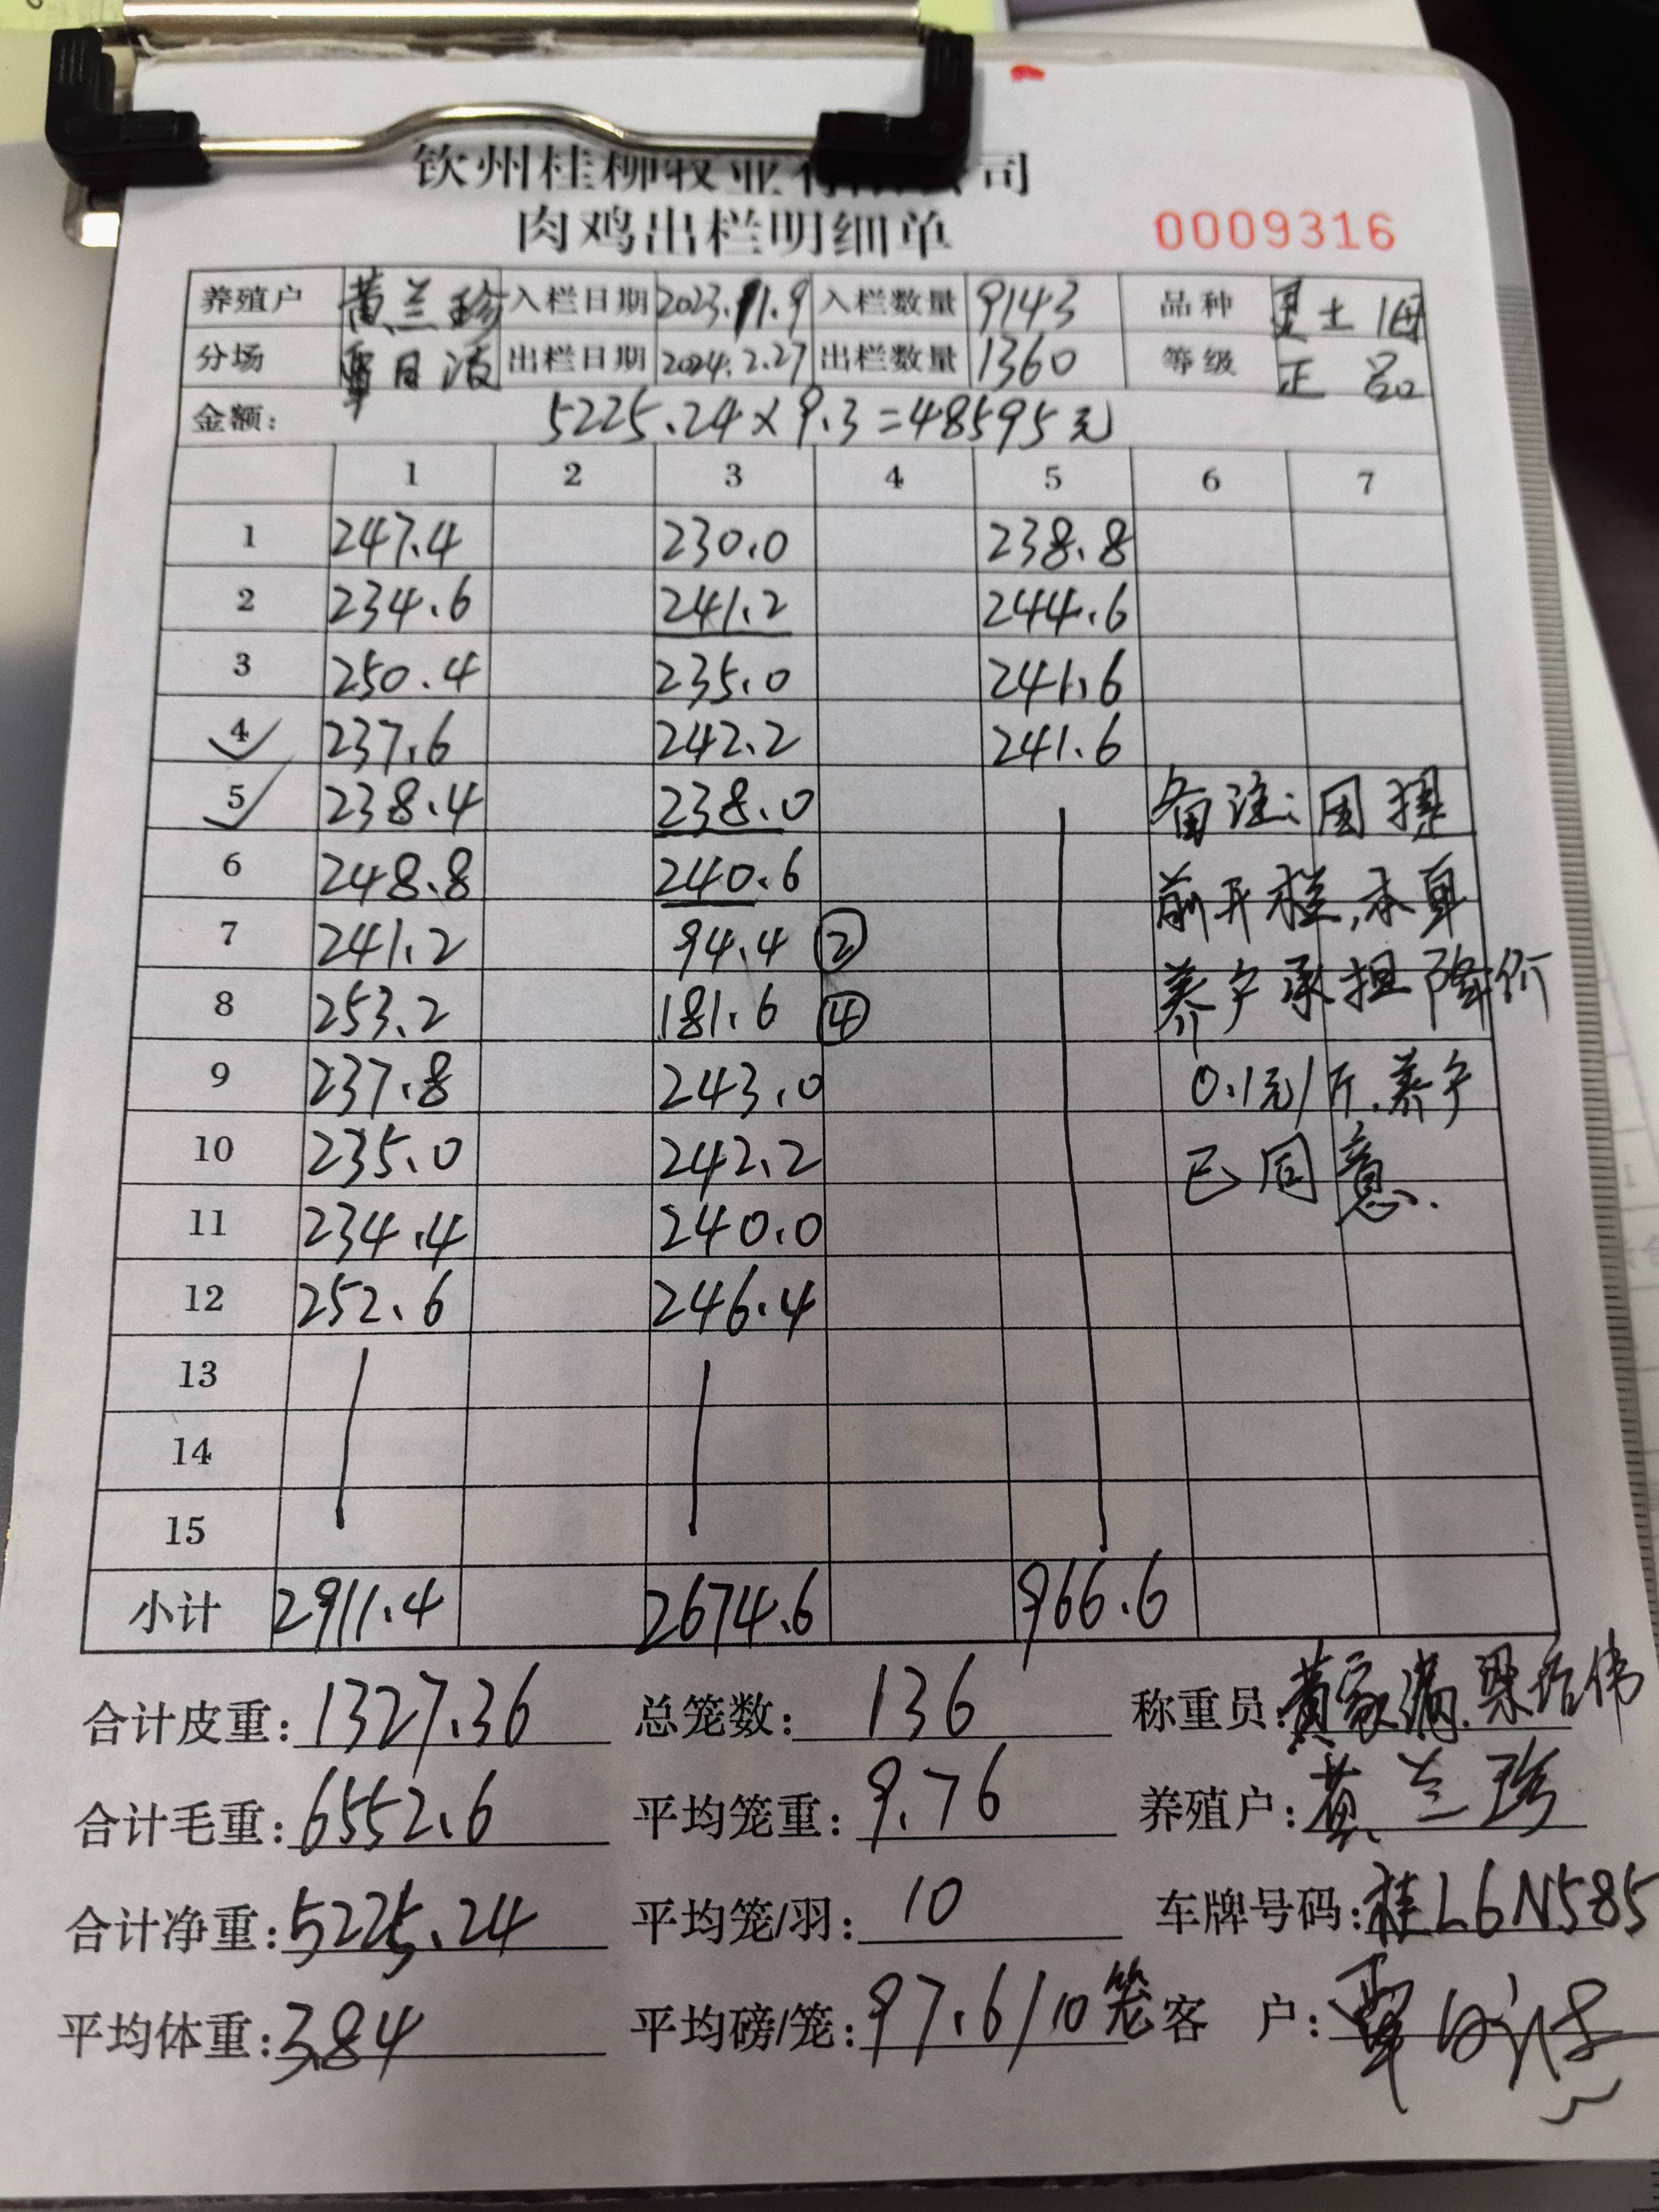 钦州桂柳牧业有限公司
肉鸡出栏明细单 0009316
养殖户 黄兰珍 入栏日期 2023.11.9 入栏数量 9143 品种 土
分场 覃日波 出栏日期 2024.2.27 出栏数量 1360 等级 正品
金额: 5225.24×9.3=48595元
1 2 3 4 5 6 7
1 247.4 230.0 238.8
2 234.6 241.2 244.6
3 250.4 235.0 241.6
4 237.6 242.2 241.6
5 238.4 238.0 备注:因提
6 248.8 240.6 前开栏,本单
7 241.2 94.4 ② 养户承担降价
8 253.2 181.6 ④
9 237.8 243.0 0.1元/斤.养户
10 235.0 242.2 已同意.
11 234.4 240.0
12 252.6 246.4
13
14
15
小计 2911.4 2674.6 966.6
合计皮重: 1327.36 总笼数: 136 称重员: 黄家满.梁
合计毛重: 6552.6 平均笼重: 9.76 养殖户: 黄兰珍
合计净重: 5225.24 平均笼/羽: 10 车牌号码: 桂L6N585
平均体重: 3.84 平均磅/笼: 97.6/10笼 客 户: 覃